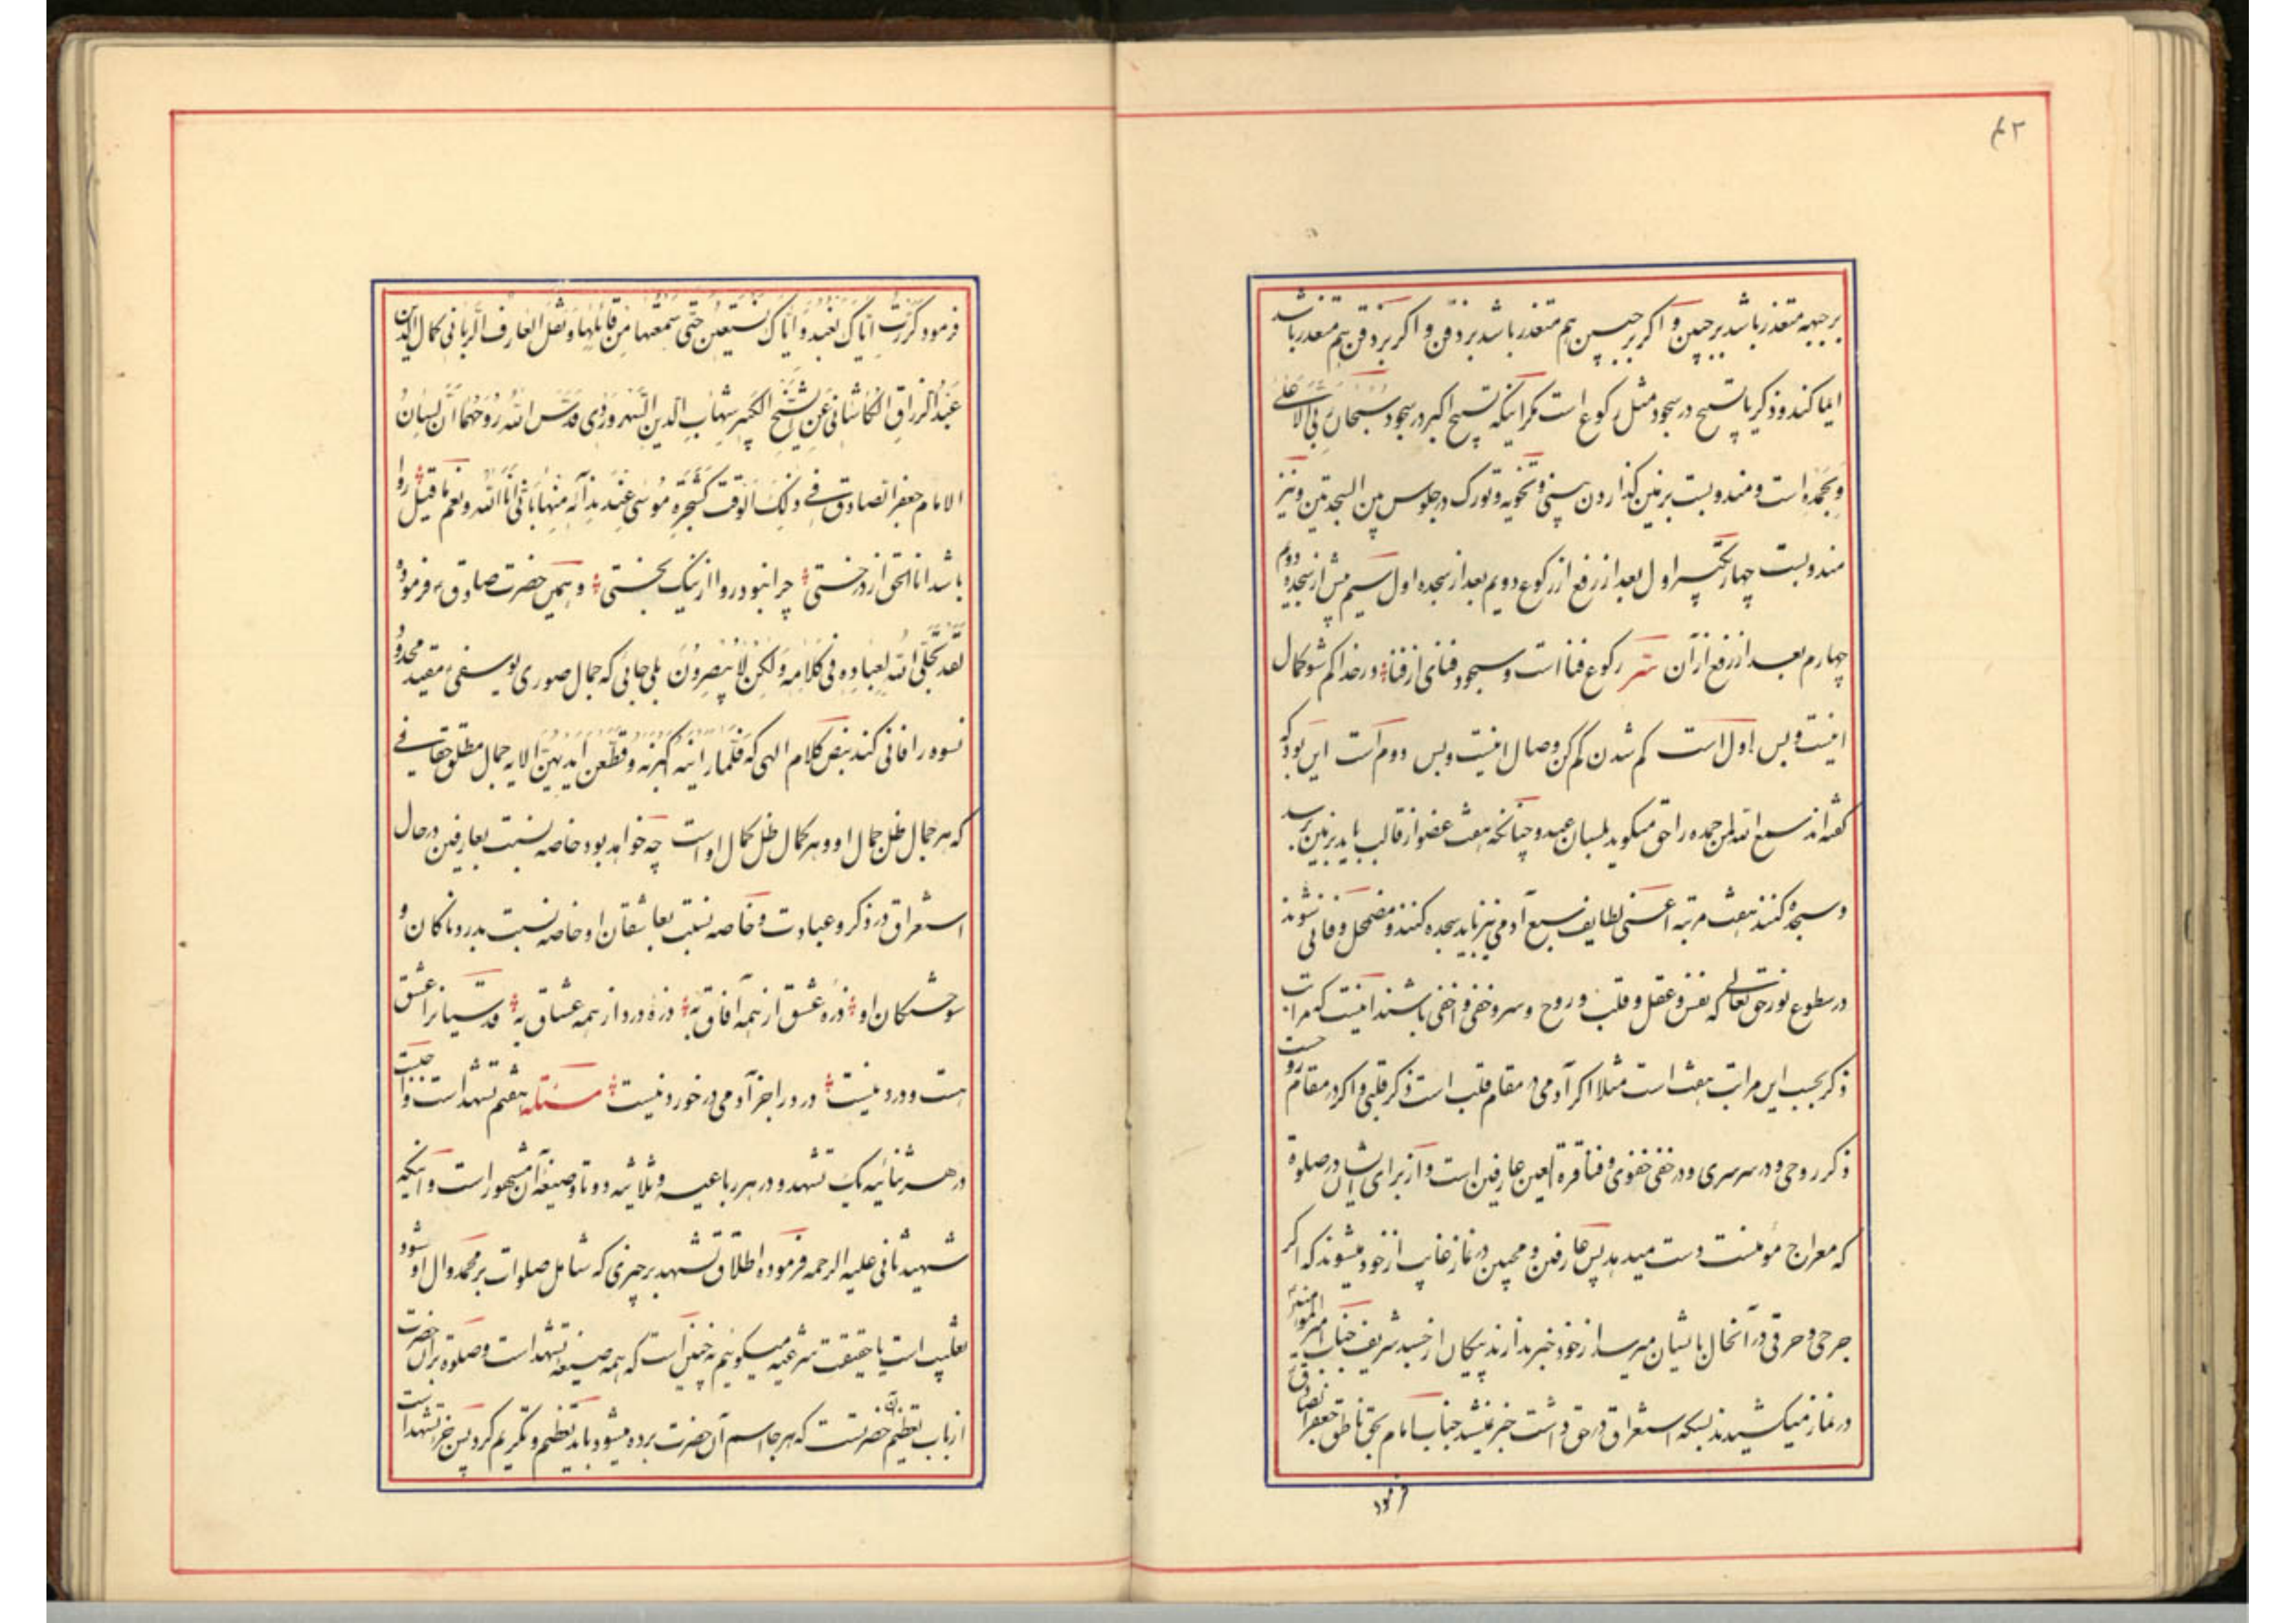 ۴۲
بر جبهه متعذر باشد بر جبین و اکر بر جبین هم متعذر باشد بر ذقن و اکر بر ذقن هم متعذر باشد
ایما کند و ذکر یا تسبیح در سجود مثل رکوع است مکر اینکه تسبیح اکبر در سجود سُبْحانَ رَبِّیَ الاَعْلی
وَبِحَمْدِه است و مندوبست بر زمین کذاردن بینی و تخویه و تورک در جلوس بین السجدتین و نیز
مندوبست چهار تکبیر اول بعد از رفع از رکوع دویم بعد از سجده اول سیم پیش از سجده دوم
چهارم بعد از رفع از آن سرّ رکوع فنا است و سجود فنای از فنا در خدا کم شو کمال
اینست و بس اول است کم شدن کم کن وصال اینست و بس دوم است این بود که
کفته اند سمع الله لمن حمده را حق میکوید بلسان عبد و چنانکه هفت عضو از قالب باید بر زمین رسد
و سجده کنند هفت مرتبه اعنی لطایف سبع آدمی نیز باید سجده کنند و مضمحل و فانی شوند
در سطوع نور حق تعالی که نفس و عقل و قلب و روح و سر و خفی و اخفی باشند اینست که مراتب
ذکر بحسب این مراتب هفت است مثلا اکر آدمی در مقام قلب است ذکر قلبی و اکر در مقام روحست
ذکر روحی و در سر سری و در خفی خفوی و فنا قرة العین عارفین است و از برای ایشان در صلوة
که معراج مؤمنست دست میدهد پس عارفین و محبین در نماز غایب از خود میشوند که اکر
جرحی و حرقی در آنحال بایشان میرسد از خود خبر ندارند پیکان از جسد شریف جناب امیر المؤمنین
در نماز میکشیدند بسکه استغراق در حق داشت خبر نمیشد جناب امام بحق ناطق جعفر الصادق
فرمود
فرمود کَرَّرْتُ اِیّاکَ نَعْبُدُ وَ اِیّاکَ نَسْتَعینُ حَتّی سَمِعْتُها مِنْ قائِلِها وَ نَقَلَ العارِف الرَّبّانی کمال الدین
عَبْدُ الرَّزاقِ الکاشانی عَنِ الشَّیْخِ الکَبیرِ شِهابِ الدّینِ السُّهْرَوَرْدی قَدَّسَ اللهُ رُوحَهُما اَنَّ لِسانَ
الامام جعفر الصادق فی ذلِکَ الوَقْت کَشَجَرَةِ مُوسی عِنْدَ نِدائِه مِنْها بِاَنّی اَنَا الله و نعم ما قیل روا
باشد انا الحق از درختی چرا نبود روا از نیک بختی و همین حضرت صادق ع فرموده
لَقَدْ تَجَلَّی اللهُ لِعِبادِه فی کَلامِه وَ لکِنْ لا یُبْصِرُونَ بلی جائی که جمال صوری یوسفی ع مقید محدود
نسوه را فانی کند بنص کلام الهی که فَلَمّا رَاَیْنَهُ اَکْبَرْنَهُ وَ قَطَّعْنَ اَیْدِیَهُنَّ الایه جمال مطلق حقیقی
که هر جمال ظل جمال او و هر کمال ظل کمال اوست چه خواهد بود خاصه نسبت بعارفین در حال
استغراق در ذکر و عبادت و خاصه نسبت بعاشقان او خاصه نسبت بدردناکان و
سوختکان او ذره عشق از همه آفاق به ذره درد از همه عشاق به قدسیانرا عشق
هست و درد نیست درد را جز آدمی در خورد نیست مسئله هفتم تشهد است واجبست
در هر ثنائیه یک تشهد و در هر رباعیه و ثلاثیه دو تا و صیغه آن مشهور است و اینکه
شهید ثانی علیه الرحمه فرموده اطلاق تشهد بر چیزی که شامل صلوات بر محمد و ال او شود
تغلیب است یا حقیقت شرعیه میکوئیم نه چنین است که همه صیغه تشهد است و صلوة بران حضرت
از باب تعظیم آن حضرتست که هر جا اسم آن حضرت برده میشود باید تعظیم و تکریم کرد پس جزء تشهد است